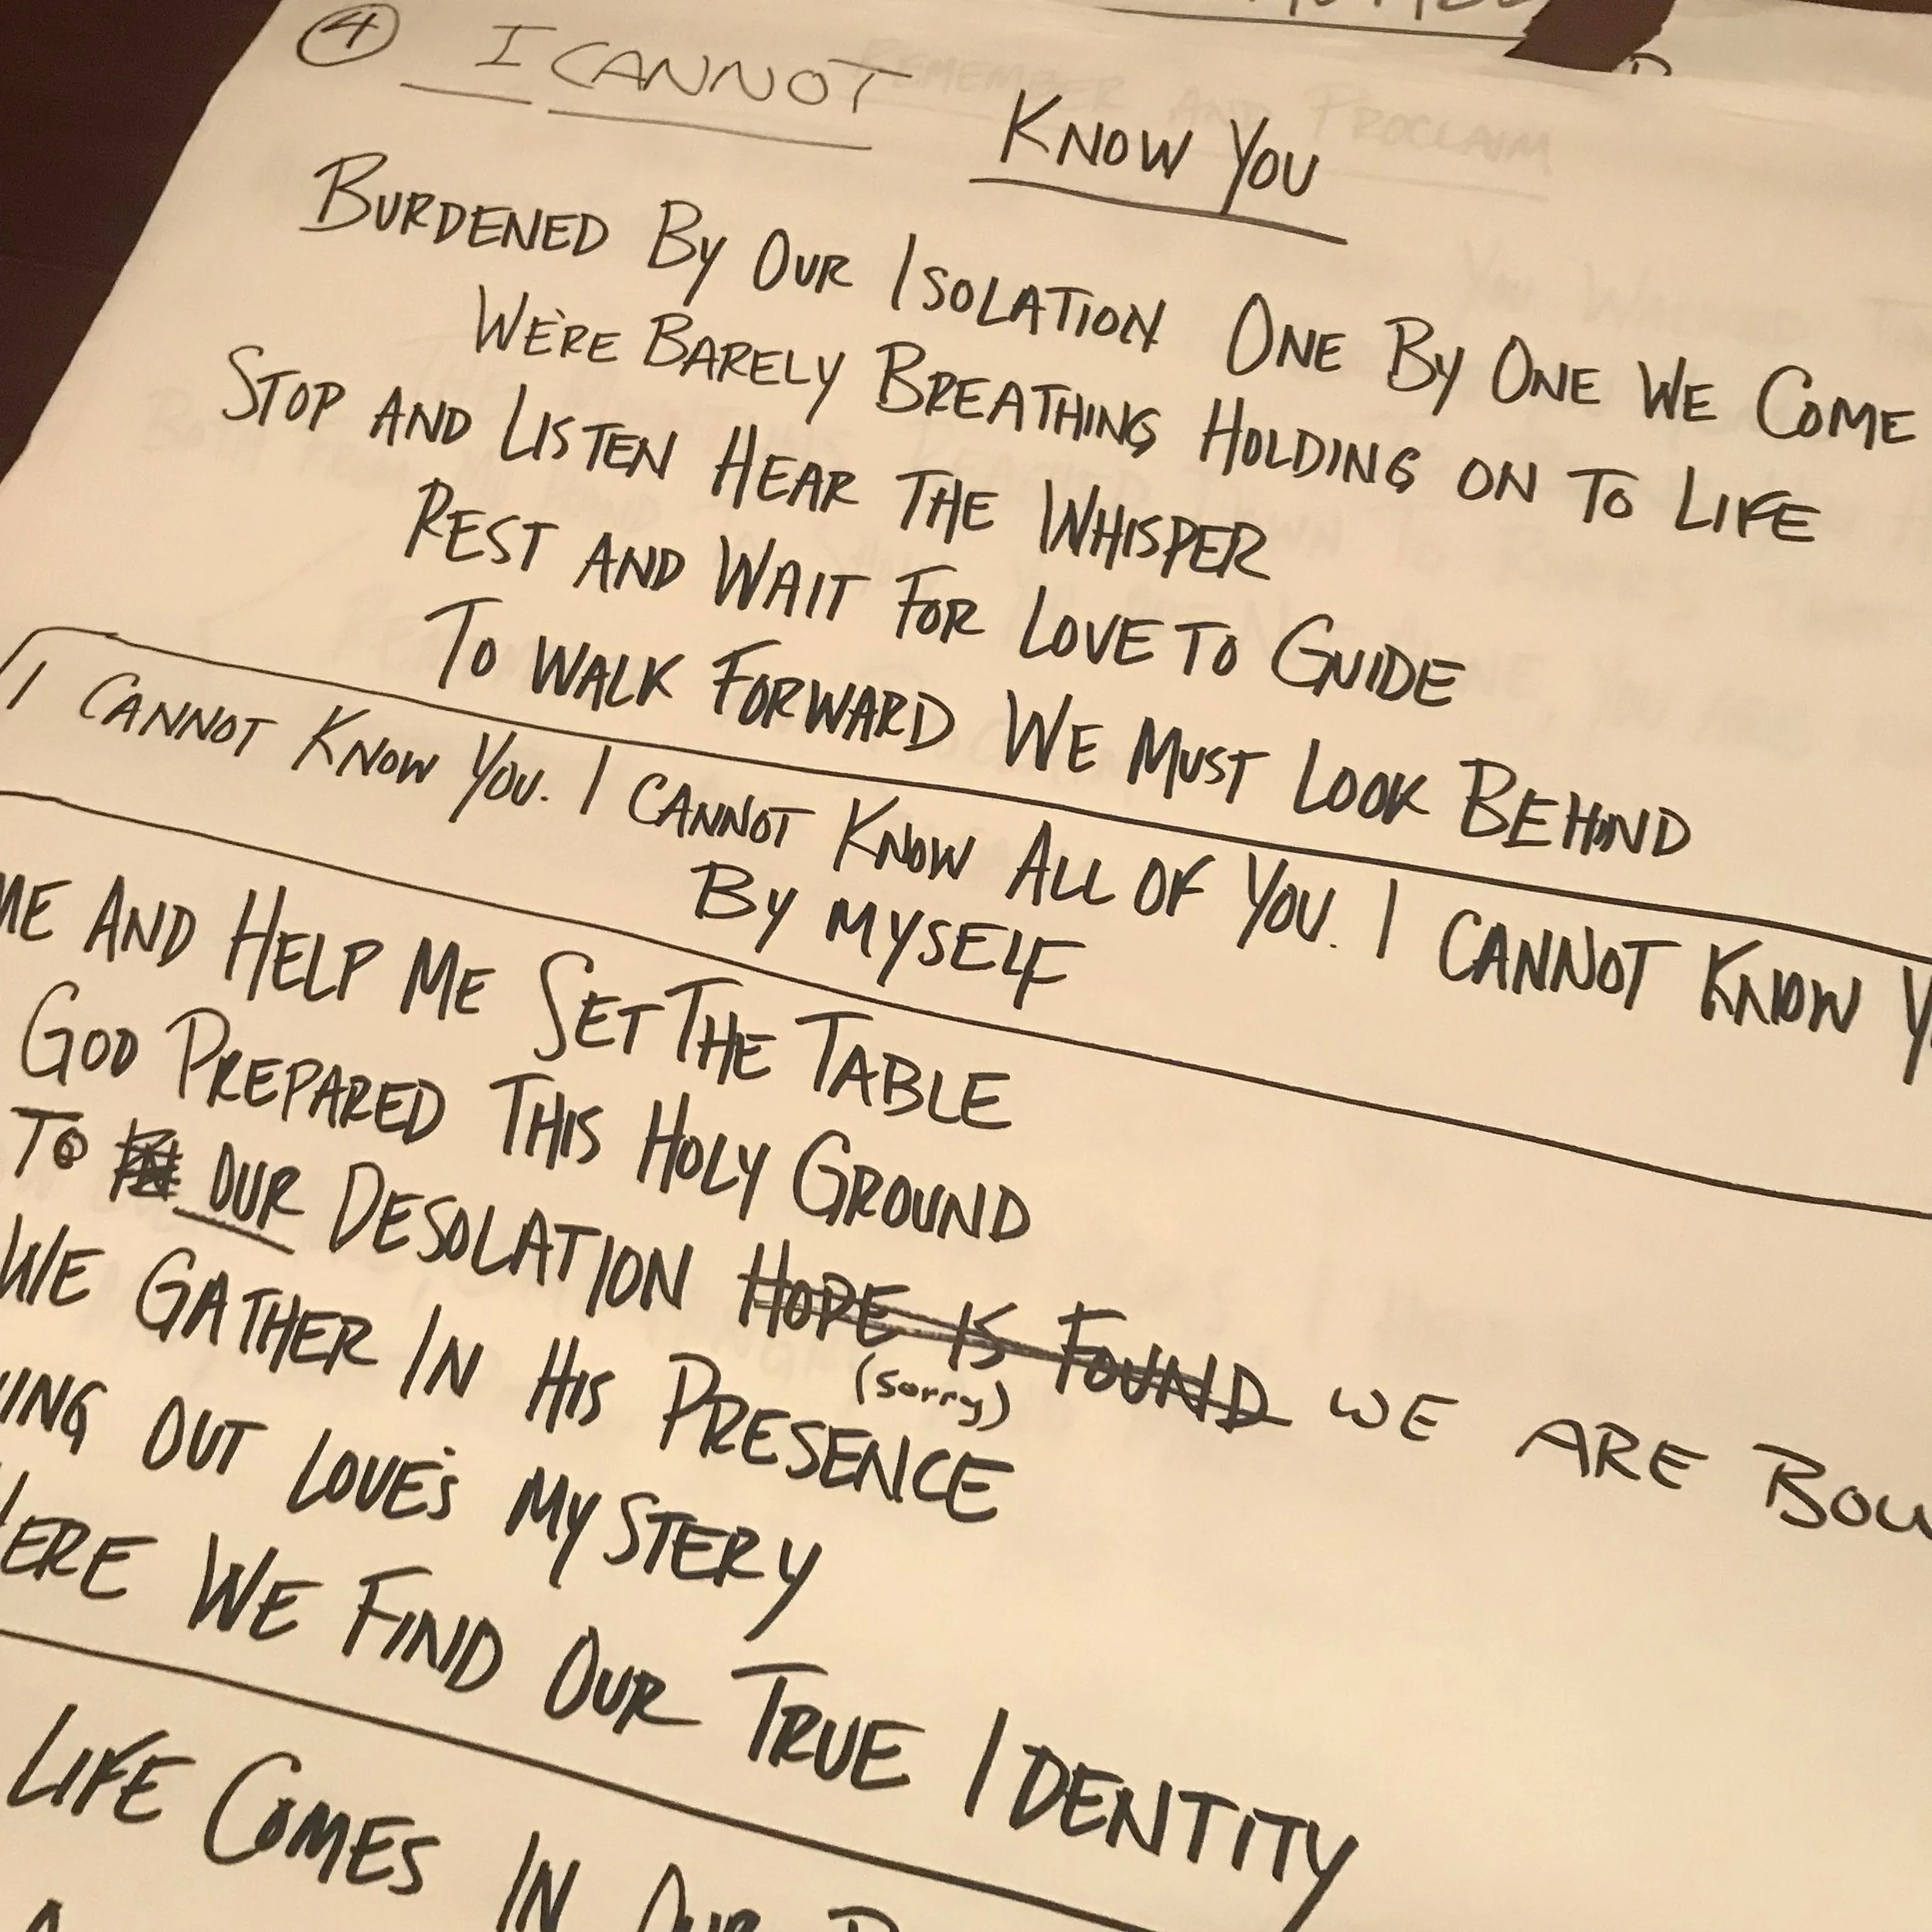 ④ I CANNOT KNOW YOU
BURDENED BY OUR ISOLATION ONE BY ONE WE COME
WE'RE BARELY BREATHING HOLDING ON TO LIFE
STOP AND LISTEN HEAR THE WHISPER
REST AND WAIT FOR LOVE TO GUIDE
TO WALK FORWARD WE MUST LOOK BEHIND
I CANNOT KNOW YOU. I CANNOT KNOW ALL OF YOU. I CANNOT KNOW Y
BY MYSELF
ME AND HELP ME SET THE TABLE
GOD PREPARED THIS HOLY GROUND
TO OUR DESOLATION HOPE IS FOUND WE ARE BOU
(sorry)
WE GATHER IN HIS PRESENCE
ING OUT LOVE'S MYSTERY
HERE WE FIND OUR TRUE IDENTITY
LIFE COMES IN OUR